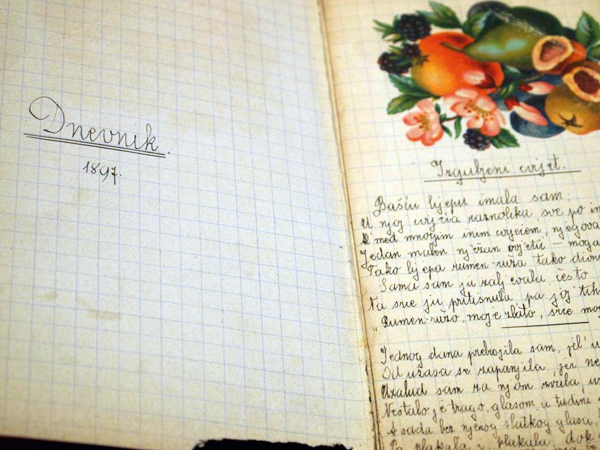 Dnevnik.
1897.
Izgubljeni cvijet.
Bašču lijepu imala sam,
U njoj cvijeća raznolika sve po
A med mnogim inim cvijećem,
Jedan malen nježan cvjetić –
Tako lijepa rumen-ruža tako
Sama sam ju zalijevala, često
Na srce ju pritisnula, pa joj
"Rumen-ružo, moje zlato, srce
Jednog dana prebrojila sam, jel'
Od užasa se zapanjila, jer
Uzalud sam za njom zvala,
Nestalo je trago, glasom u tudjini
A sada bez njenog slatkog glasa,
plakala i plakala, dok